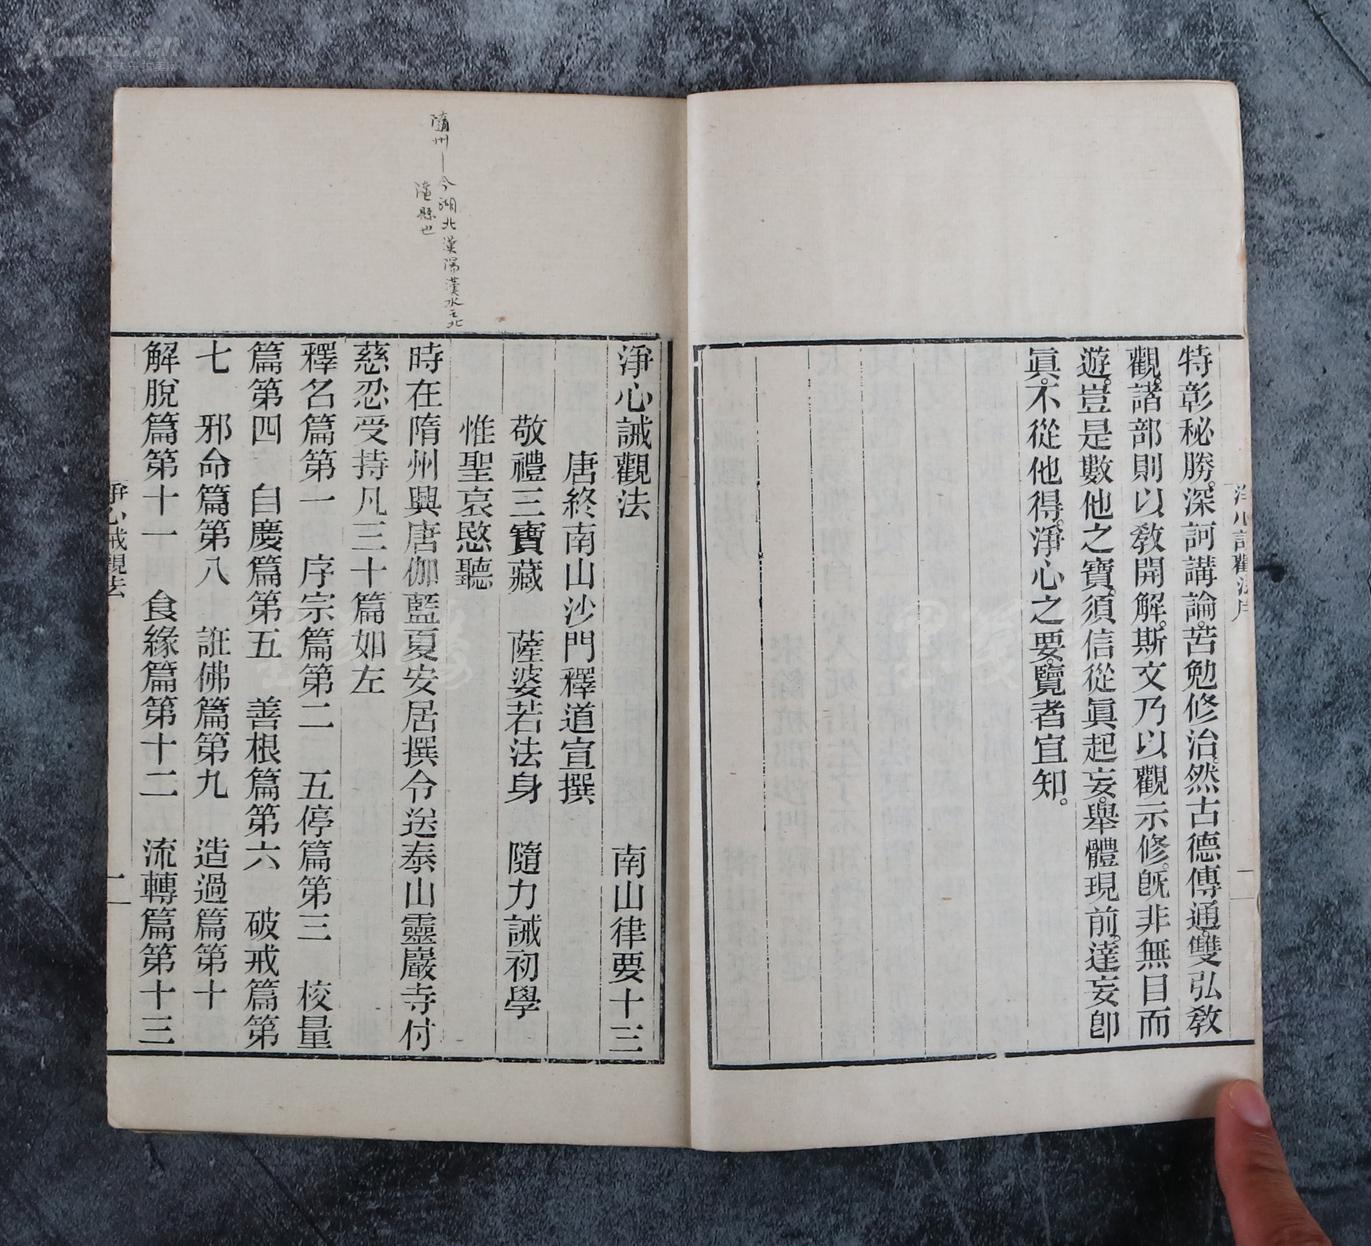 特彰秘勝。深訶講論。苦勉修治。然古德傳通。雙弘敎
觀。諸部則以敎開解。斯文乃以觀示修。旣非無目而
遊。豈是數他之寶。須信從眞起妄。舉體現前。達妄卽
眞。不從他得。淨心之要。覽者宜知。
淨心誡觀法序
一
淨心誡觀法 南山律要十三
唐終南山沙門釋道宣撰
敬禮三寶藏 薩婆若法身 隨力誡初學
惟聖哀愍聽
時在隋州興唐伽藍夏安居撰令送泰山靈巖寺付
慈忍受持凡三十篇如左
釋名篇第一 序宗篇第二 五停篇第三 校量
篇第四 自慶篇第五 善根篇第六 破戒篇第
七 邪命篇第八 誑佛篇第九 造過篇第十
解脫篇第十一 食緣篇第十二 流轉篇第十三
淨心誡觀法
隨州—今湖北漢陽漢水之北
縣也